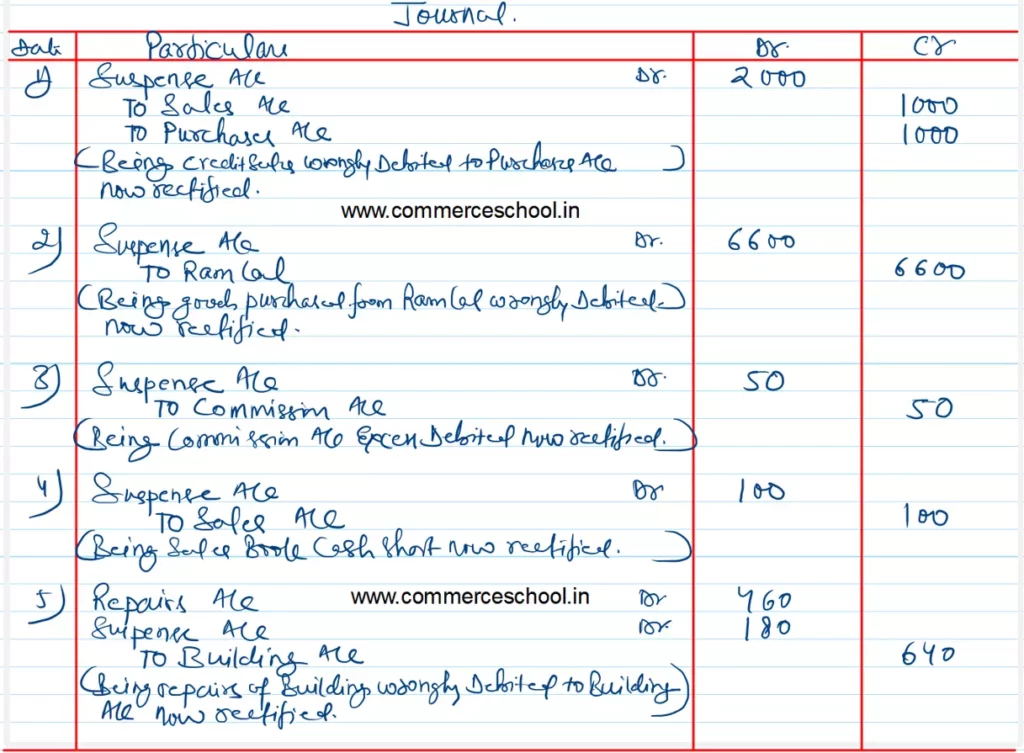 Journal.
Date Particulars Dr. Cr
1) Suspense A/c Dr. 2000
To Sales A/c 1000
To Purchases A/c 1000
(Being Credit Sales wrongly Debited to Purchase A/c )
now rectified.
www.commerceschool.in
2) Suspense A/c Dr. 6600
To Ram Lal 6600
(Being goods purchased from Ram Lal wrongly Debited.)
now rectified.
3) Suspense A/c Dr. 50
To Commission A/c 50
(Being Commission A/c Excess Debited now rectified.)
4) Suspense A/c Dr 100
To Sales A/c 100
(Being Sales Book Cash short now rectified. )
5) Repairs A/c www.commerceschool.in Dr 460
Suspense A/c Dr. 180
To Building A/c 640
(Being repairs of Building wrongly Debited to Building)
A/c now rectified.